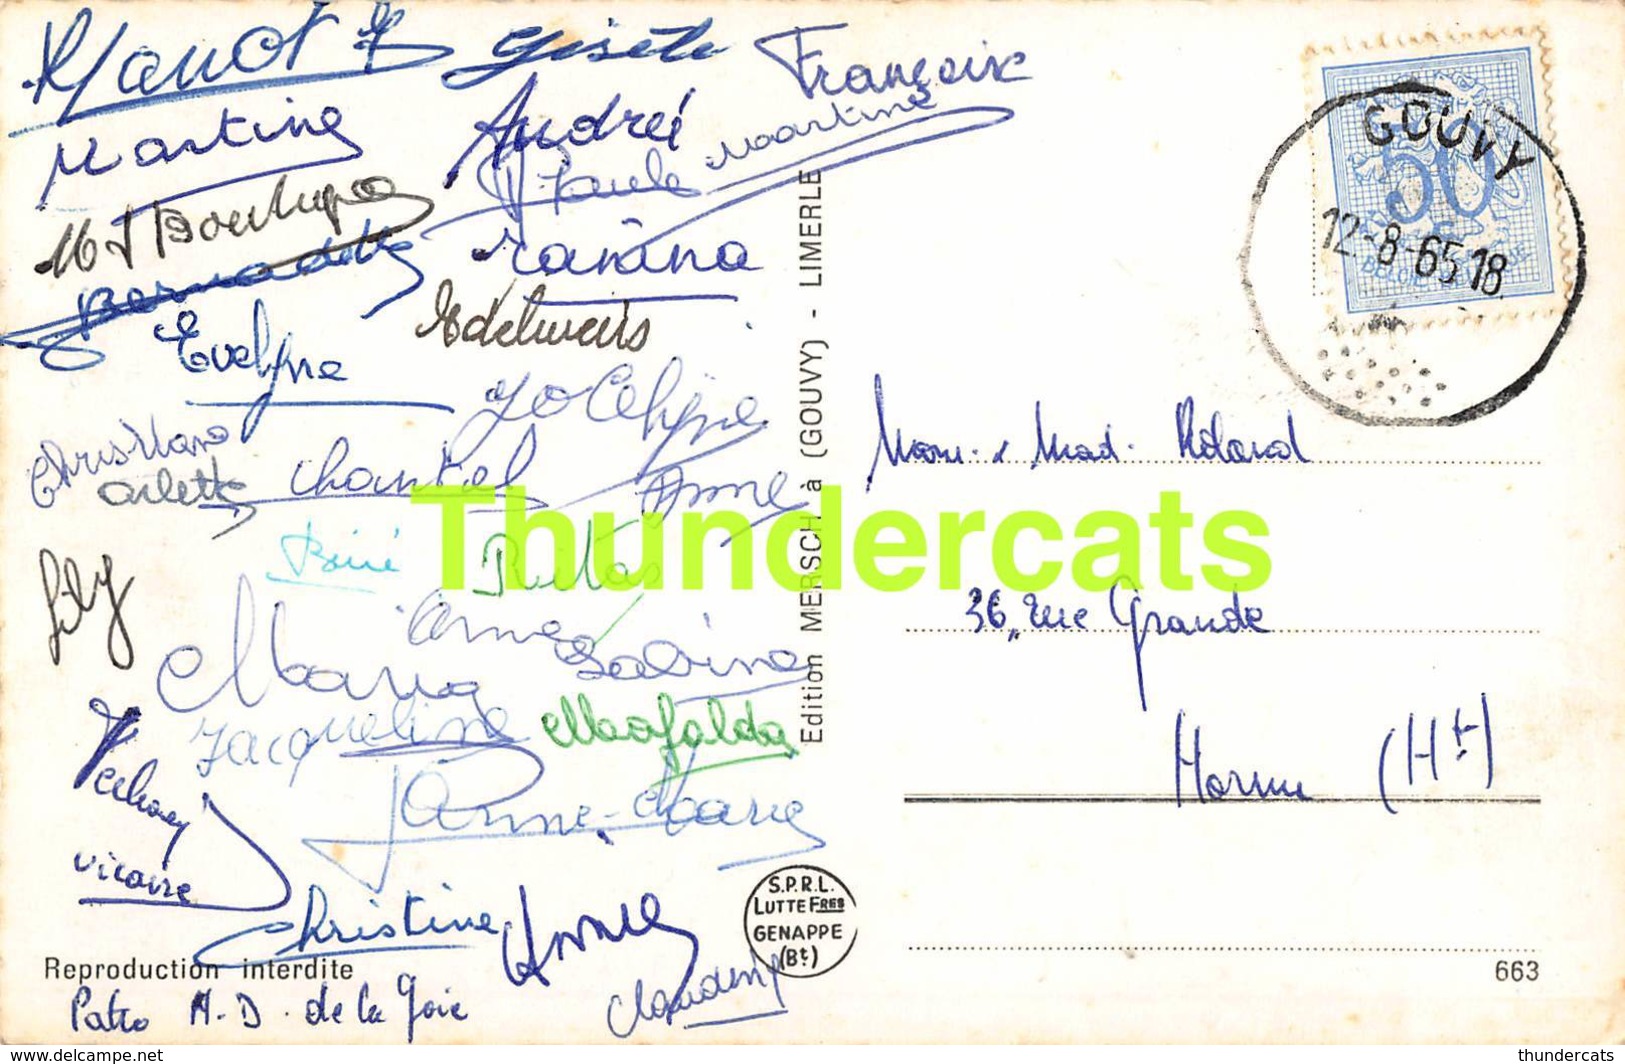 Gisèle
Françoise
Martine
André
Paule
Martine
Bernadette
Edelweiss
Evelyne
Jocelyne
Christiane
Chantal
Arlette
Anne
Rita
Lily
Anne
Sabine
Maria
Jacqueline
Mafalda
Anne-Marie
vicaire
Christine
Annie
Claudine
Reproduction interdite
Patro N.D. de la Joie
Edition MERSCH à (GOUVY) - LIMERLE
S.P.R.L.
LUTTE FRES
GENAPPE
(Bt)
GOUVY
12-8-65 18
50
BELGIE BELGIQUE
Mons. & Mad. Roland
36, rue Grande
Hornu (Ht)
663
Thundercats
delcampe.net
thundercats